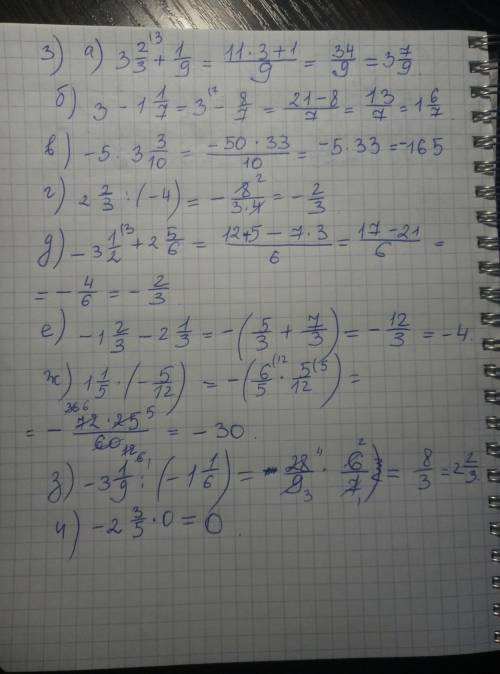 3) а) 3 2/3⁽³ + 1/9 = (11·3+1)/9 = 34/9 = 3 7/9
б) 3 - 1 1/7 = 3⁽⁷ - 8/7 = (21-8)/7 = 13/7 = 1 6/7
в) -5·3 3/10 = (-50·33)/10 = -5·33 = -165
г) 2 2/3 : (-4) = - 8²/(3·4) = - 2/3
д) -3 1/2⁽³ + 2 5/6 = (12+5-7·3)/6 = (17-21)/6 =
= - 4/6 = - 2/3
е) -1 2/3 - 2 1/3 = -(5/3 + 7/3) = - 12/3 = -4.
ж) 1 1/5 · (- 5/12) = -(6/5⁽¹² · 5/12⁽⁵) =
= - (72·25⁵)/60 = -30.
з) -3 1/9 : (-1 1/6) = 28⁴/9₃ · 6²/7₁ = 8/3 = 2 2/3
и) -2 3/5 · 0 = 0.